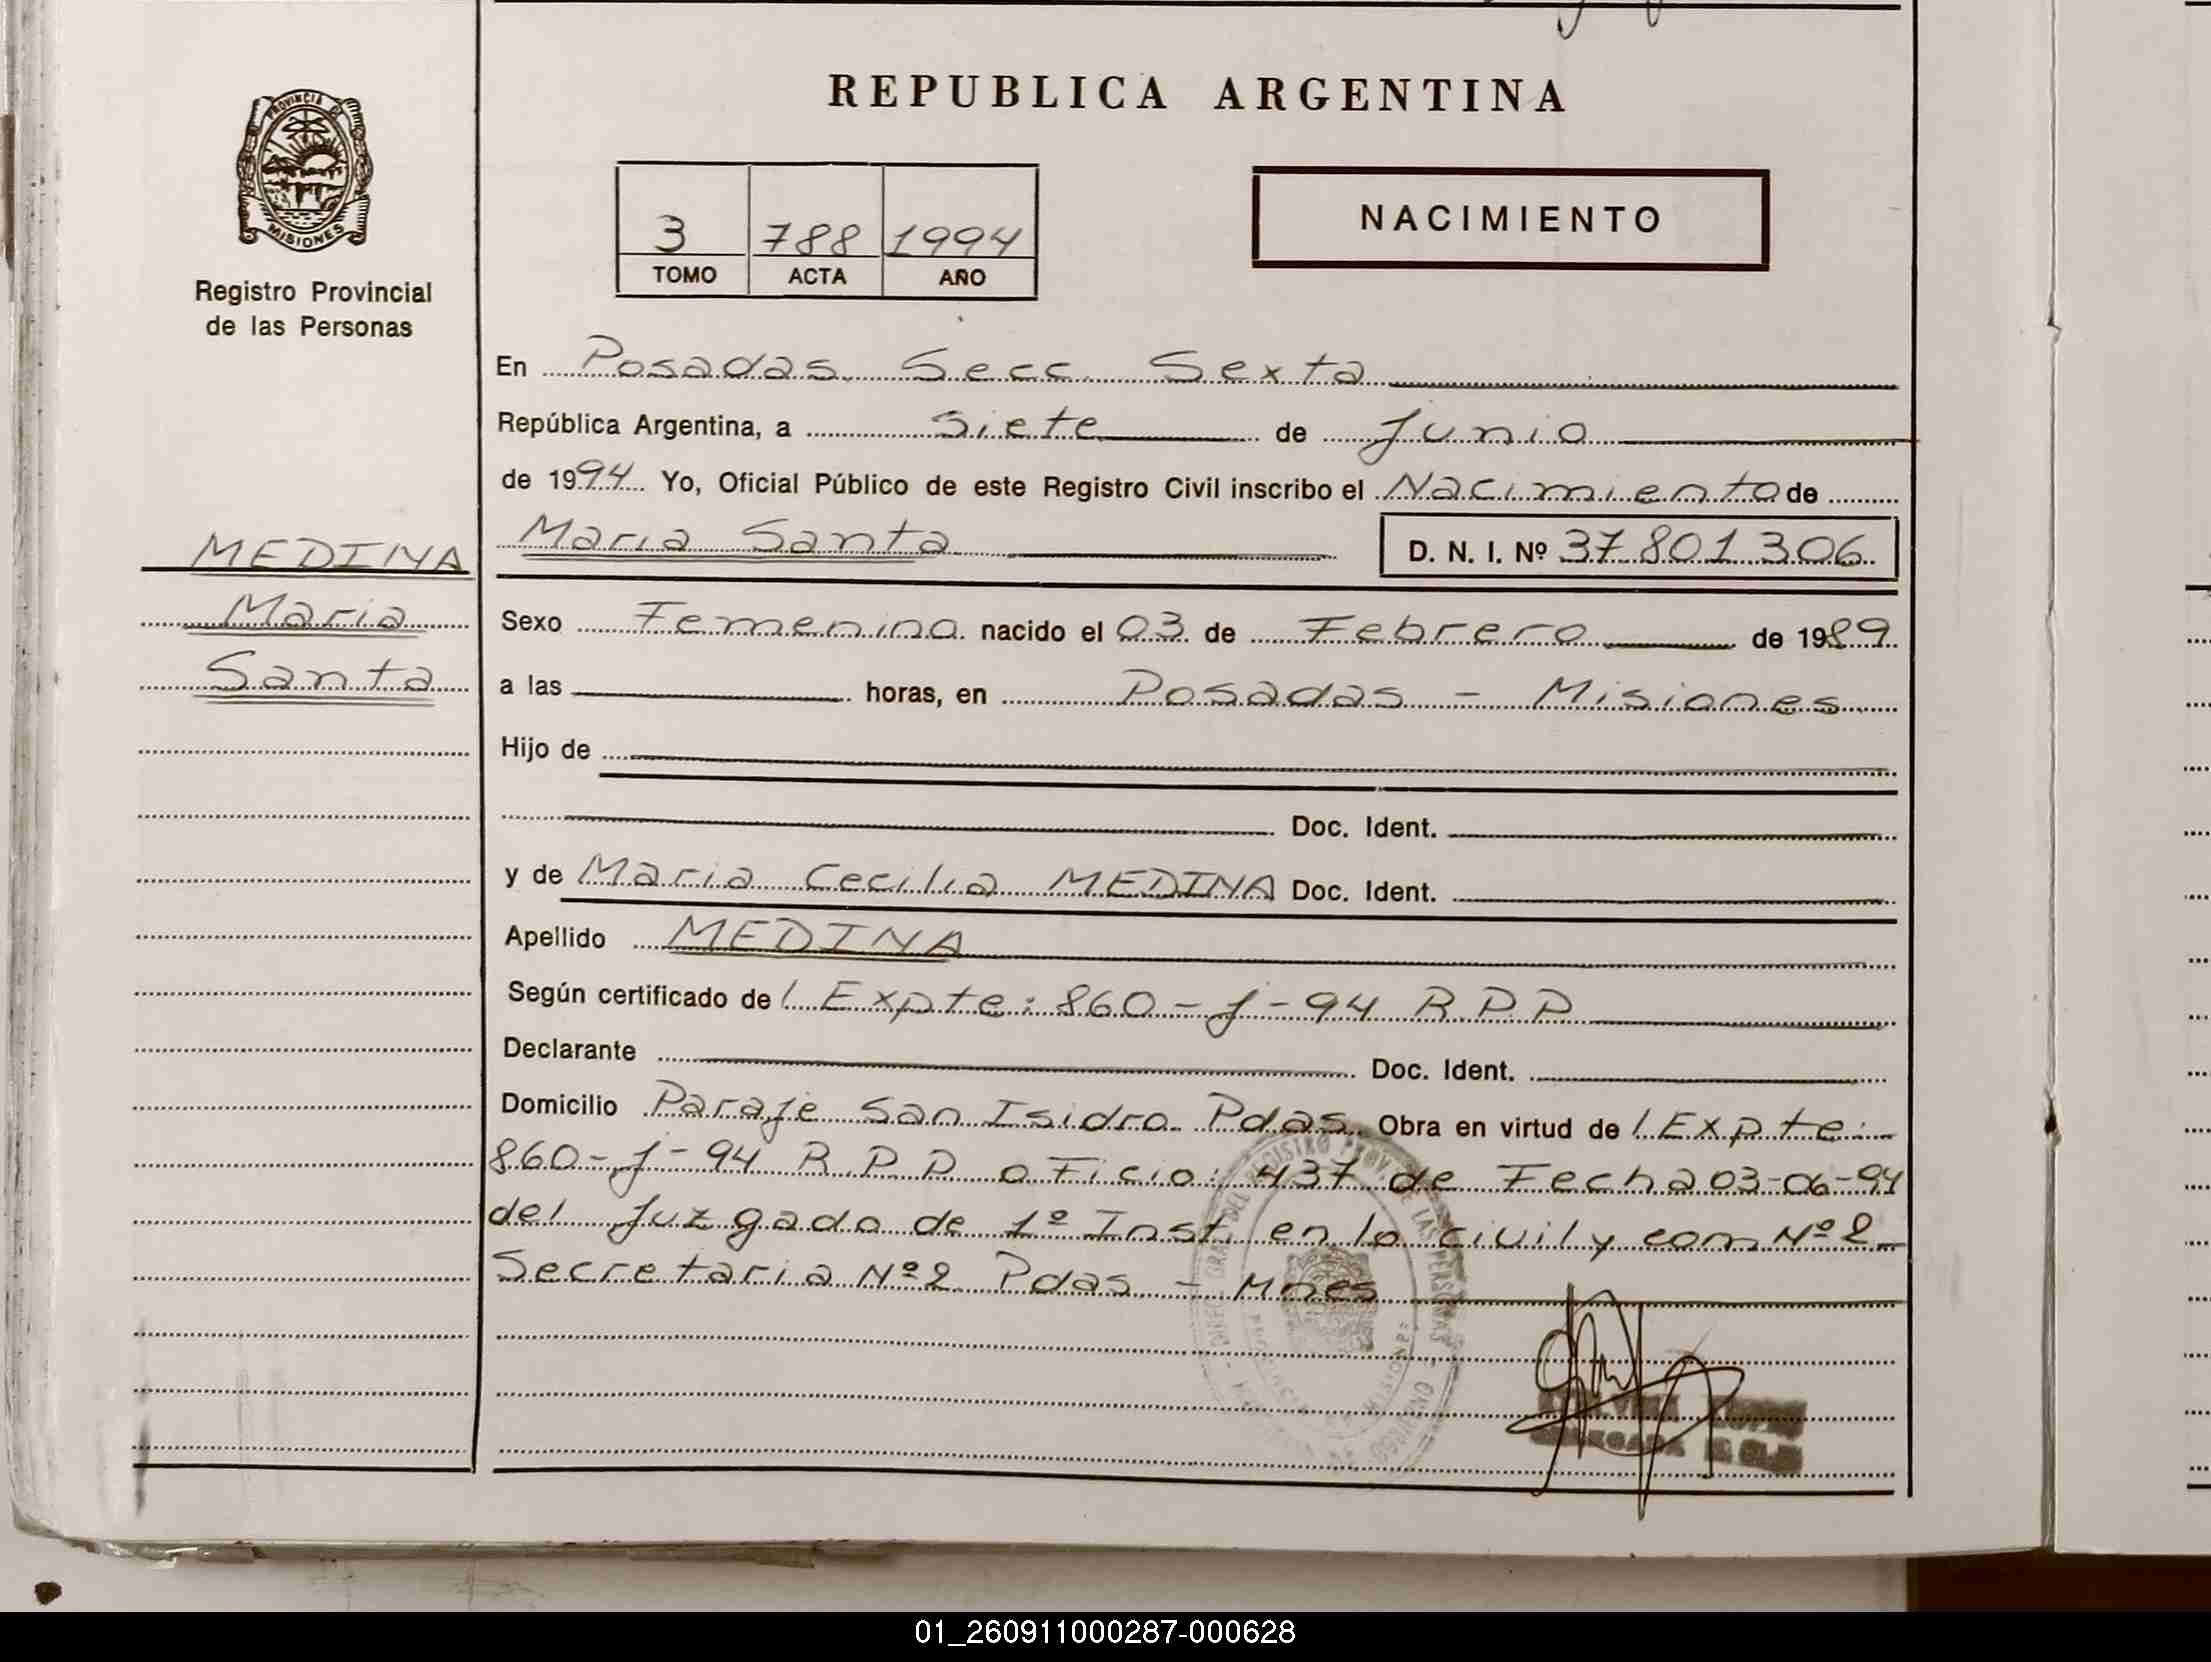 REPUBLICA ARGENTINA
PROVINCIA DE
MISIONES
Registro Provincial
de las Personas
3 788 1994
TOMO ACTA AÑO
NACIMIENTO
En Posadas Secc. Sexta
República Argentina, a Siete de Junio
de 1994 Yo, Oficial Público de este Registro Civil inscribo el Nacimiento de
Maria Santa D. N. I. Nº 37.801.306
MEDINA
Maria
Santa
Sexo Femenino nacido el 03 de Febrero de 1989
a las horas, en Posadas - Misiones
Hijo de
Doc. Ident.
y de Maria Cecilia MEDINA Doc. Ident.
Apellido MEDINA
Según certificado de / Expte: 860-J-94 R.P.P
Declarante Doc. Ident.
Domicilio Paraje San Isidro Pdas. Obra en virtud de / Expte:
860-J-94 R.P.P oficio: 437 de Fecha 03-06-94
del Juzgado de 1º Inst. en lo civil y com Nº 2
Secretaria Nº 2 Pdas - Mnes
01_260911000287-000628